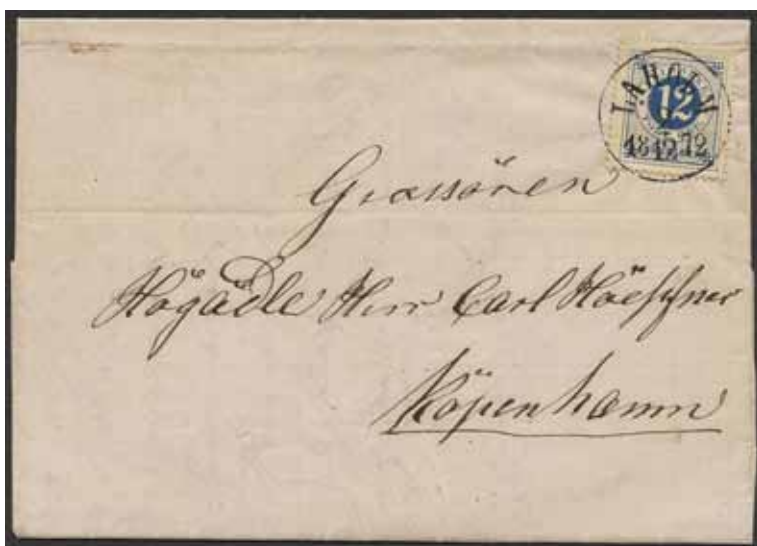 LAHOLM
12
1872
Grossören
Högädle Herr Carl Höepfner
Köpenhamn